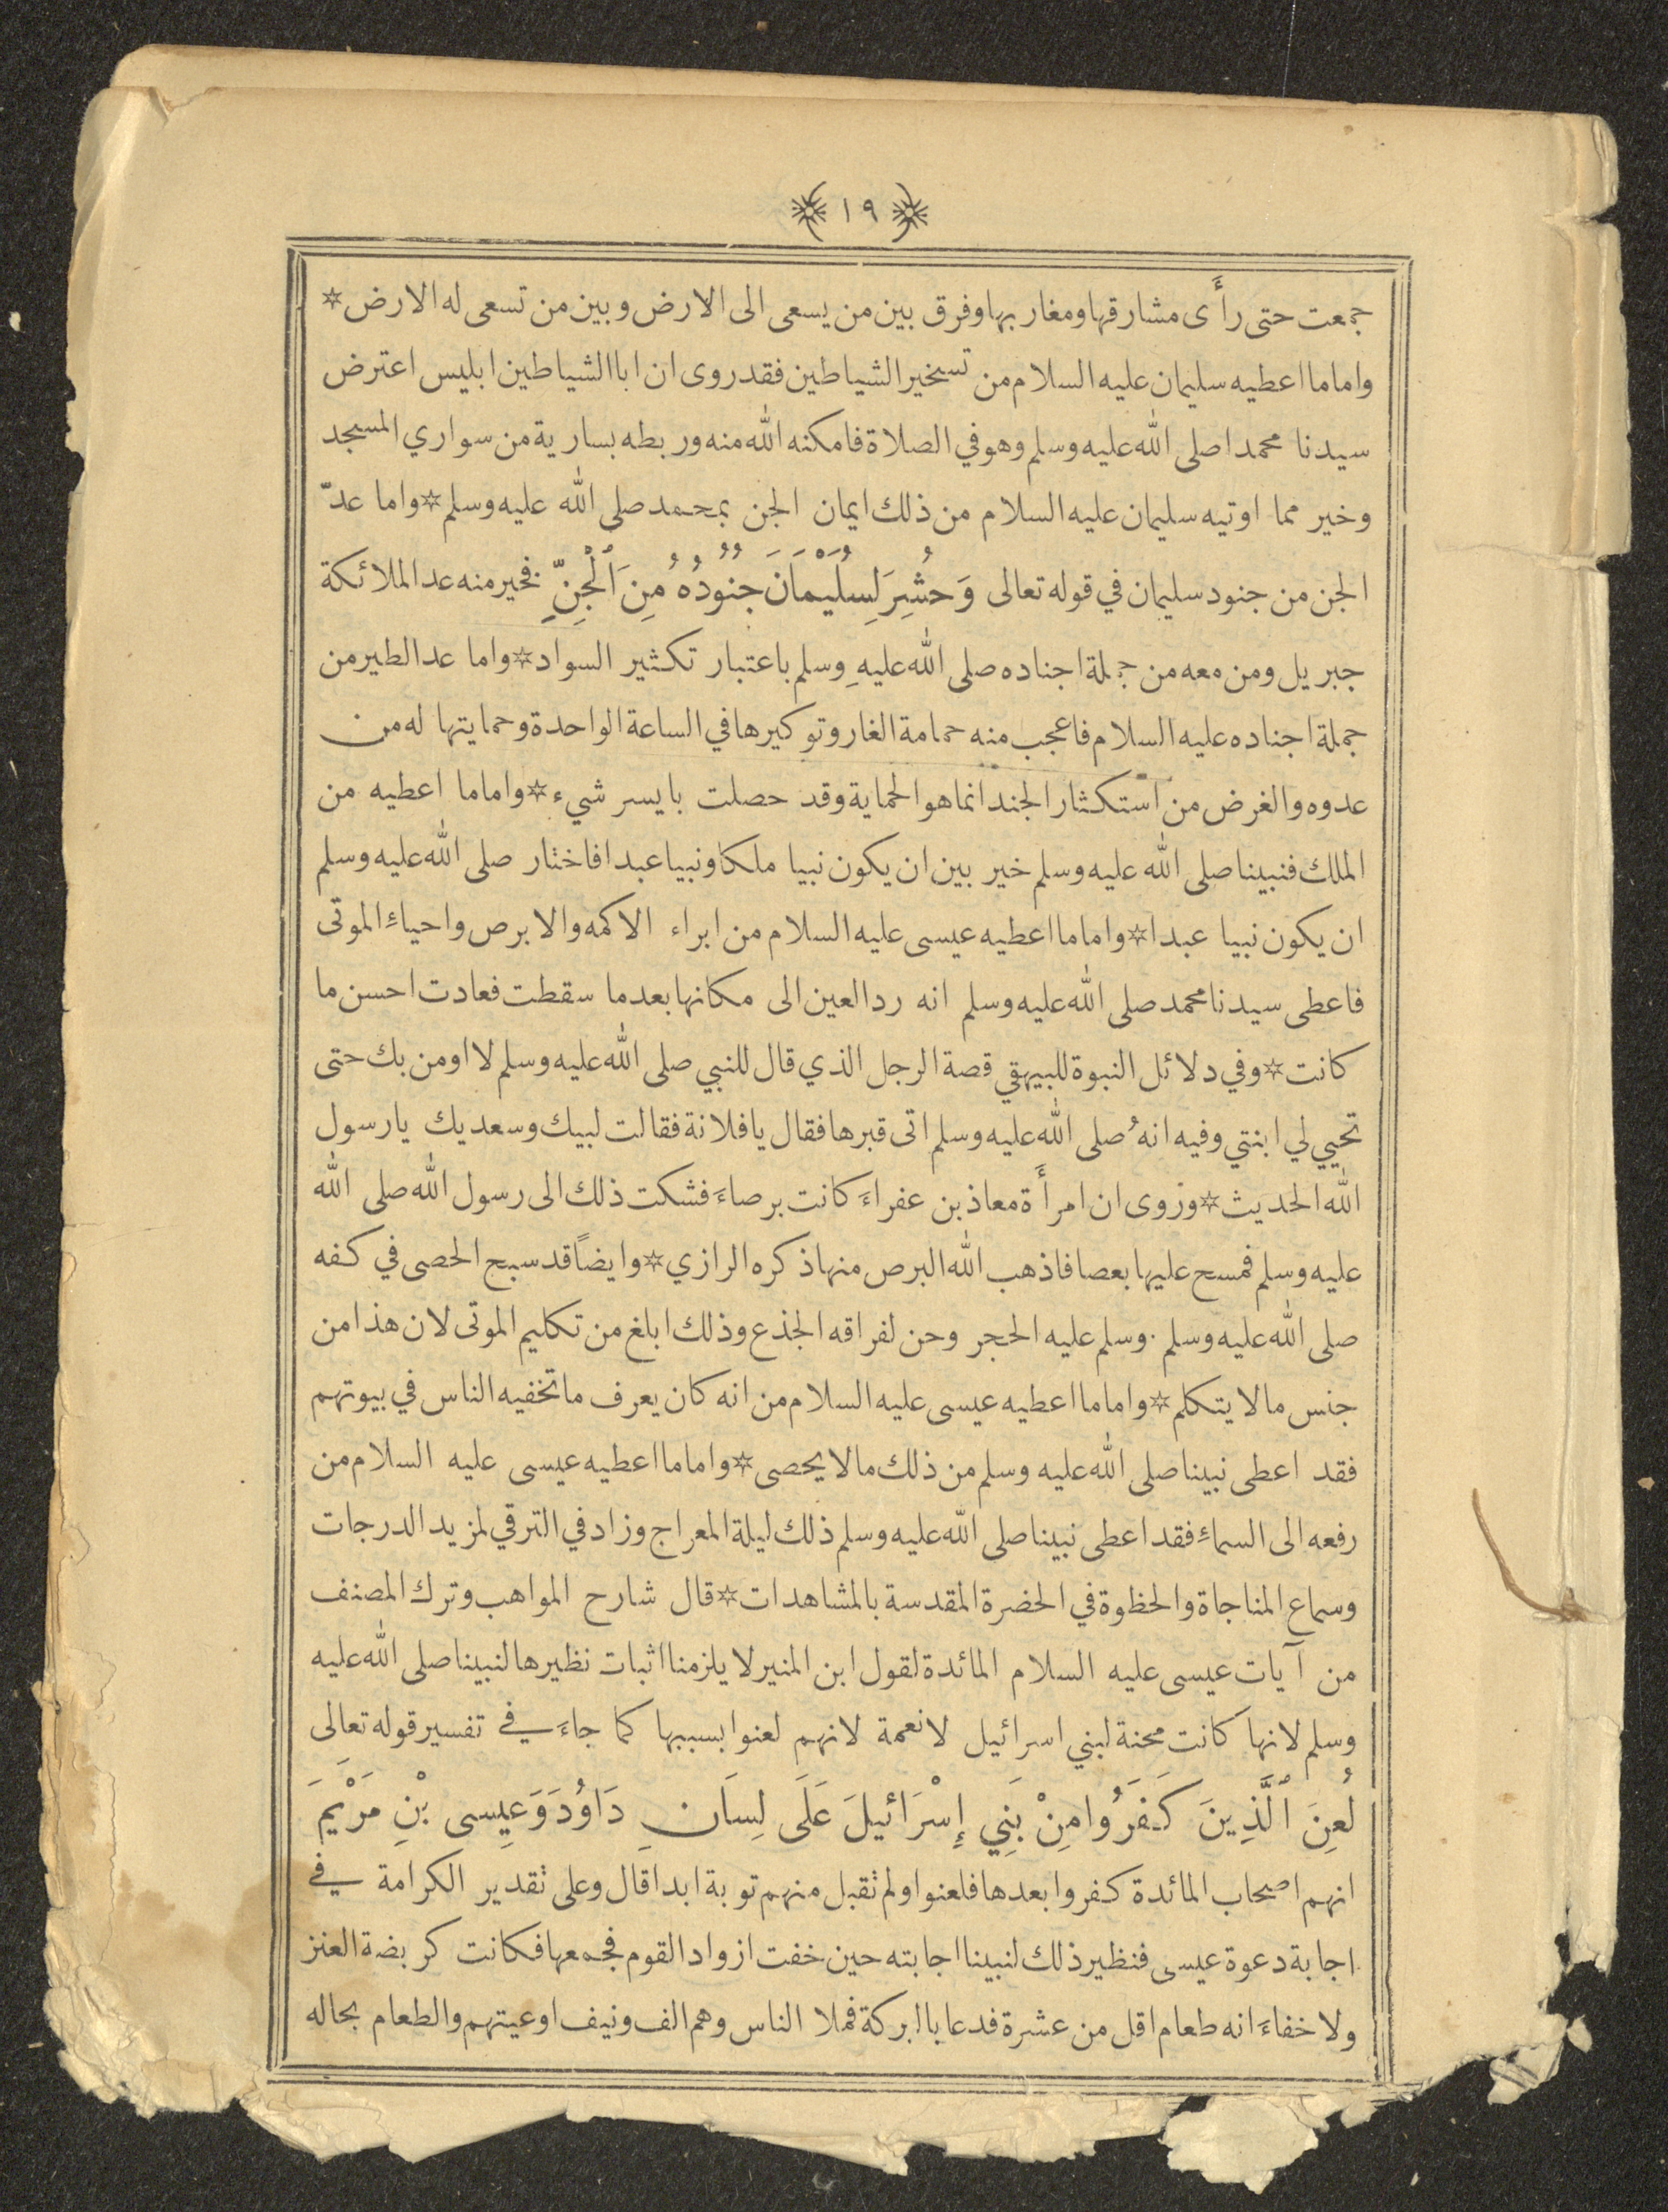 ﴿ ١٩ ﴾
جمعت حتى رأَى مشارقها ومغاربها وفرق بين من يسعى الى الارض وبين من تسعى له الارض *
واما ما اعطيه سليمان عليه السلام من تسخير الشياطين فقد روى ان ابا الشياطين ابليس اعترض
سيدنا محمدا صلى الله عليه وسلم وهو في الصلاة فامكنه الله منه وربطه بسارية من سواري المسجد
وخير مما اوتيه سليمان عليه السلام من ذلك ايمان الجن بمحمد صلى الله عليه وسلم * واما عدّ
الجن من جنود سليمان في قوله تعالى وَحُشِرَ لِسُلَيْمَانَ جُنُودُهُ مِنَ ٱلْجِنِّ فخير منه عد الملائكة
جبريل ومن معه من جملة اجناده صلى الله عليهِ وسلم باعتبار تكثير السواد * واما عد الطير من
جملة اجناده عليه السلام فاعجب منه حمامة الغار وتوكيرها في الساعة الواحدة وحمايتها له من
عدوه والغرض من استكثار الجند انما هو الحماية وقد حصلت بايسر شيء * واما ما اعطيه من
الملك فنبينا صلى الله عليه وسلم خير بين ان يكون نبيا ملكا ونبيا عبدا فاختار صلى الله عليه وسلم
ان يكون نبيا عبدا * واما ما اعطيه عيسى عليه السلام من ابراء الاكمه والابرص واحياءِ الموتى
فاعطى سيدنا محمد صلى الله عليه وسلم انه رد العين الى مكانها بعد ما سقطت فعادت احسن ما
كانت * وفي دلائل النبوة للبيهقي قصة الرجل الذي قال للنبي صلى الله عليه وسلم لا اومن بك حتى
تحيي لي ابنتي وفيه انهُ صلى الله عليه وسلم اتى قبرها فقال يا فلانة فقالت لبيك وسعديك يا رسول
الله الحديث * وروى ان امرأَة معاذ بن عفراءَ كانت برصاءَ فشكت ذلك الى رسول الله صلى الله
عليه وسلم فمسح عليها بعصا فاذهب الله البرص منها ذكره الرازي * وايضًا قد سبح الحصى في كفه
صلى الله عليه وسلم وسلم عليه الحجر وحن لفراقه الجذع وذلك ابلغ من تكليم الموتى لان هذا من
جنس ما لا يتكلم * واما ما اعطيه عيسى عليه السلام من انه كان يعرف ما تخفيه الناس في بيوتهم
فقد اعطى نبينا صلى الله عليه وسلم من ذلك ما لا يحصى * واما ما اعطيه عيسى عليه السلام من
رفعه الى السماءِ فقد اعطى نبينا صلى الله عليه وسلم ذلك ليلة المعراج وزاد في الترقي لمزيد الدرجات
وسماع المناجاة والحظوة في الحضرة المقدسة بالمشاهدات * قال شارح المواهب وترك المصنف
من آيات عيسى عليه السلام المائدة لقول ابن المنير لا يلزمنا اثبات نظيرها لنبينا صلى الله عليه
وسلم لانها كانت محنة لبني اسرائيل لا نعمة لانهم لعنوا بسببها كما جاءَ في تفسير قوله تعالى
لُعِنَ ٱلَّذِينَ كَفَرُوا مِنْ بَنِي إِسْرَائيلَ عَلَى لِسَانِ دَاوُدَ وَعِيسى بْنِ مَرْيَمَ
انهم اصحاب المائدة كفروا بعدها فلعنوا ولم تقبل منهم توبة ابدا قال وعلى تقدير الكرامة في
اجابة دعوة عيسى فنظير ذلك لنبينا اجابته حين خفت ازواد القوم فجمعها فكانت كربضة العنز
ولا خفاءَ انه طعام اقل من عشرة فدعا بالبركة فملا الناس وهم الف ونيف اوعيتهم والطعام بحاله